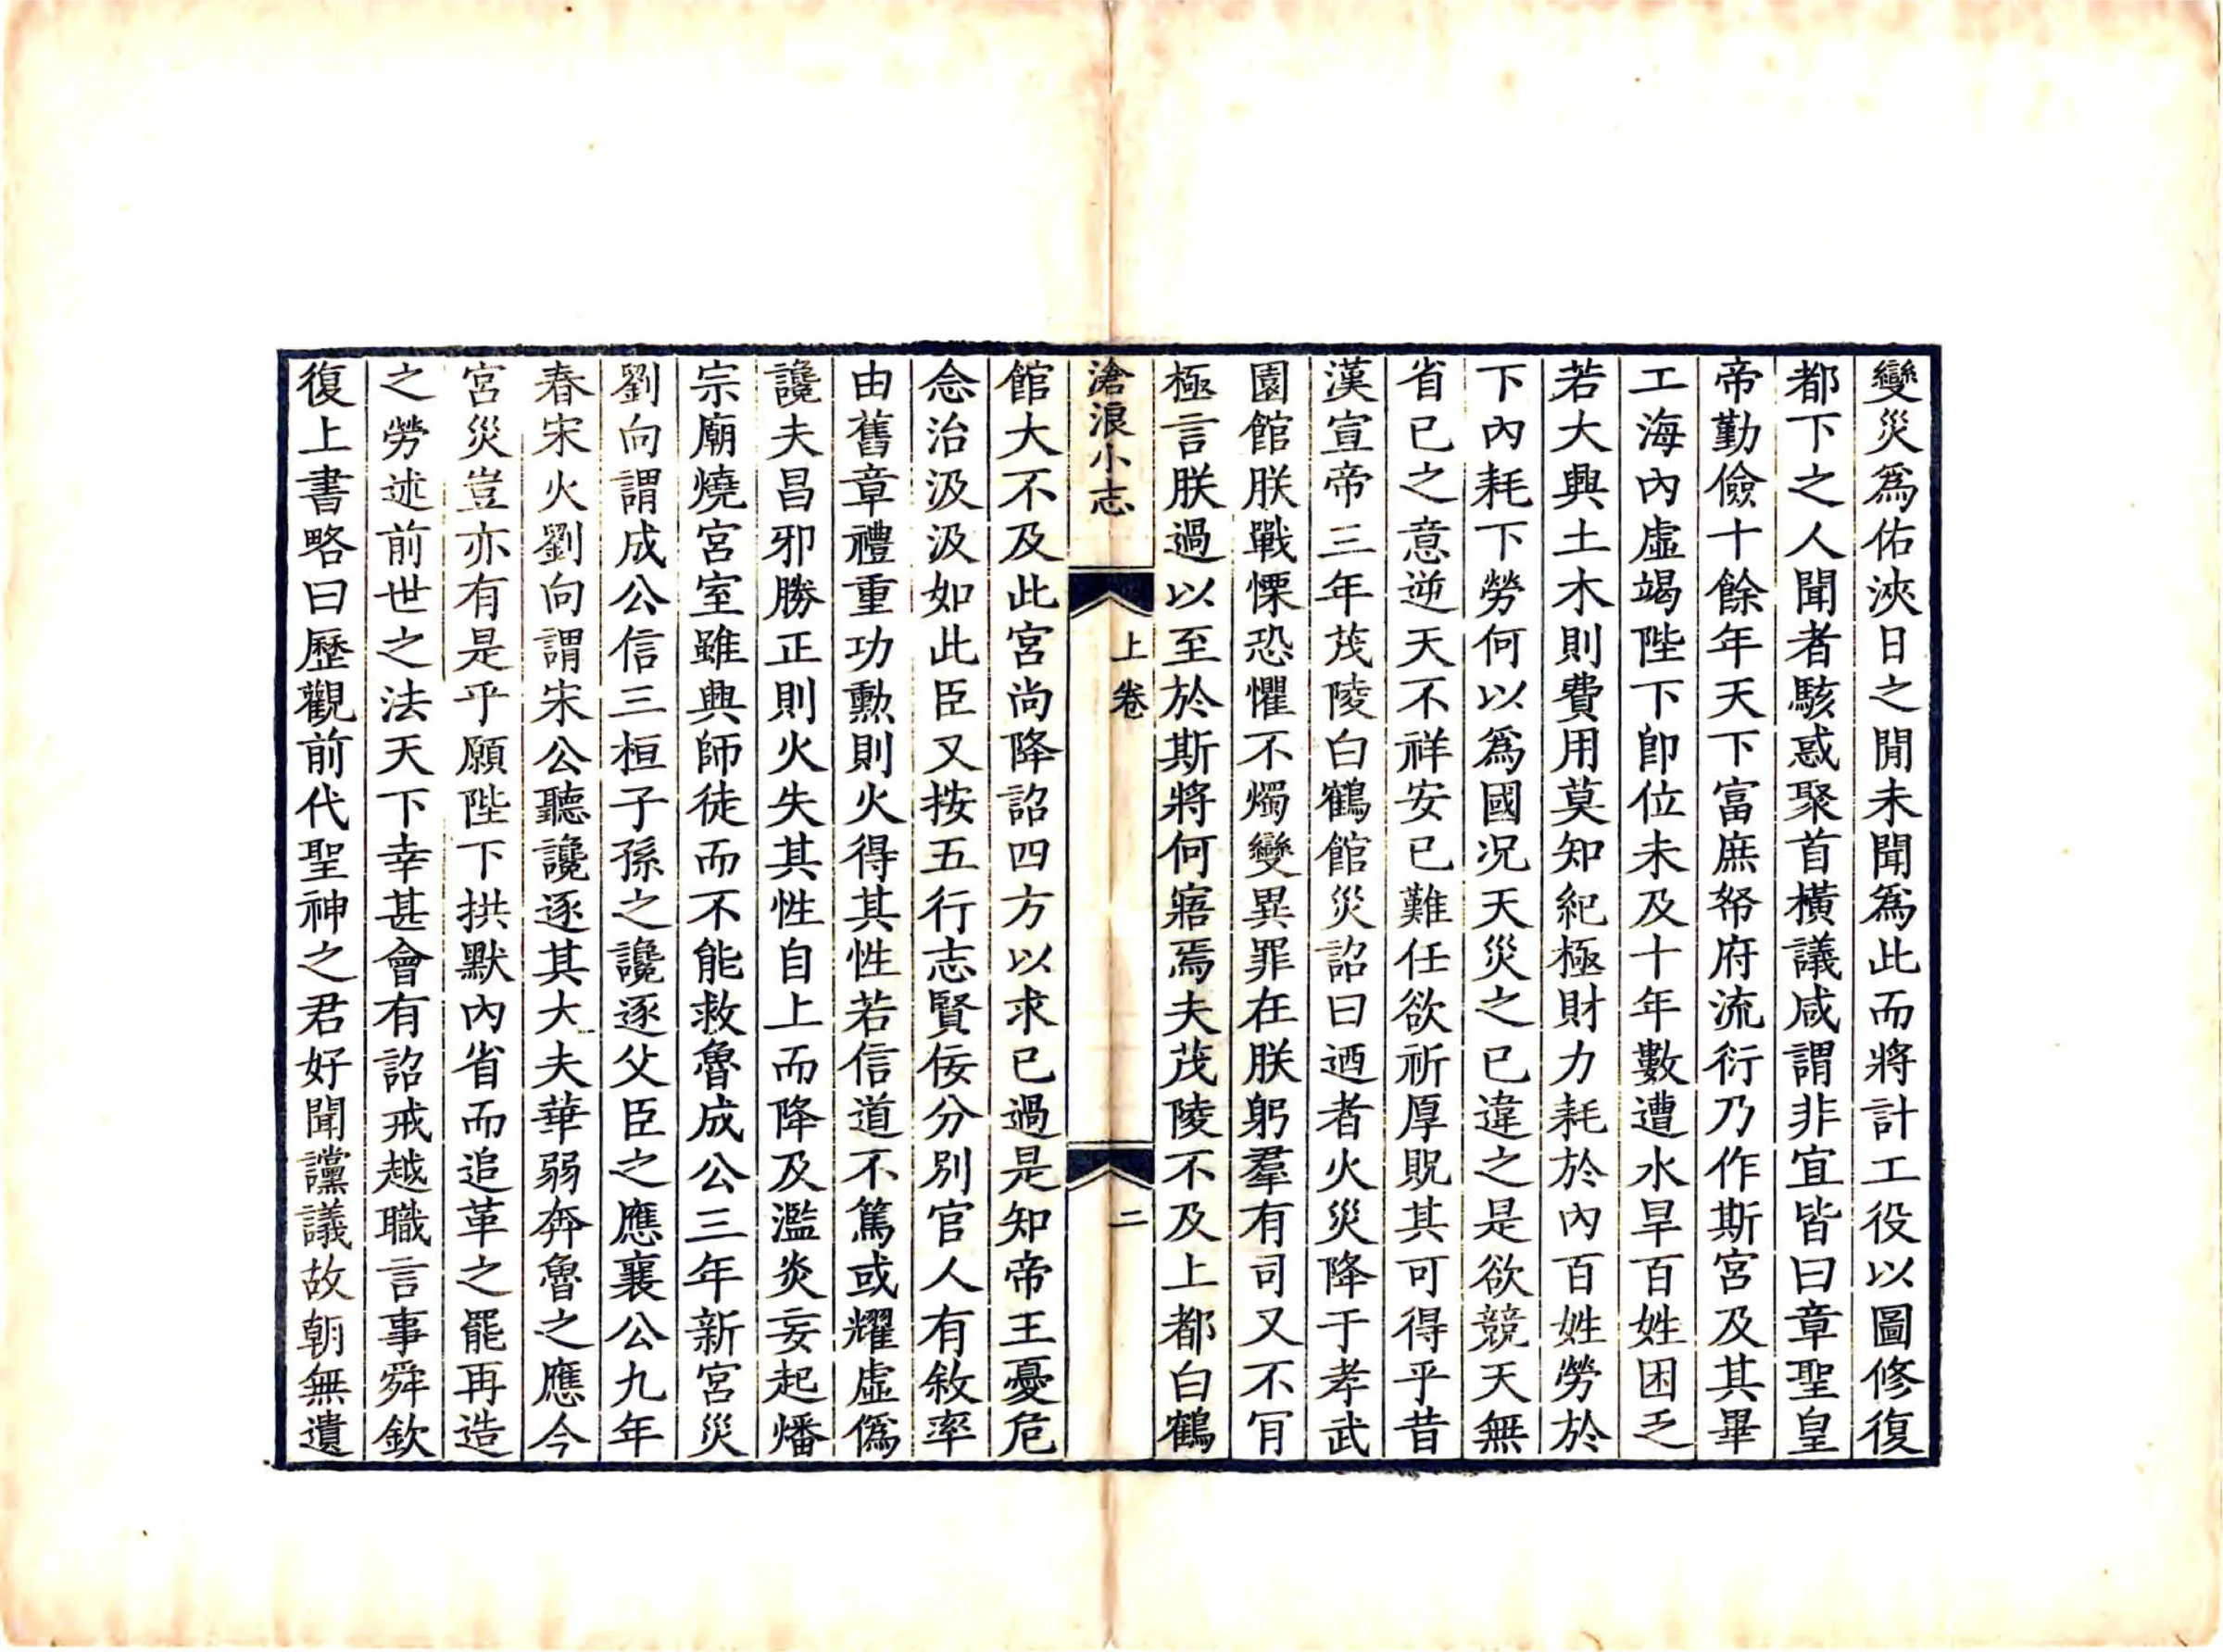 變災爲佑浹日之閒未聞爲此而將計工役以圖修復
都下之人聞者駭惑聚首橫議咸謂非宜皆曰章聖皇
帝勤儉十餘年天下富庶帑府流衍乃作斯宮及其畢
工海內虛竭陛下卽位未及十年數遭水旱百姓困乏
若大興土木則費用莫知紀極財力耗於內百姓勞於
下內耗下勞何以爲國况天災之已違之是欲競天無
省已之意逆天不祥安已難任欲祈厚貺其可得乎昔
漢宣帝三年茂陵白鶴館災詔曰迺者火災降于孝武
園館朕戰慄恐懼不燭變異罪在朕躬羣有司又不肎
極言朕過以至於斯將何寤焉夫茂陵不及上都白鶴
滄浪小志
上卷
二
館大不及此宮尚降詔四方以求已過是知帝王憂危
念治汲汲如此臣又按五行志賢佞分別官人有敘率
由舊章禮重功勳則火得其性若信道不篤或耀虛僞
讒夫昌邪勝正則火失其性自上而降及濫炎妄起燔
宗廟燒宮室雖興師徒而不能救魯成公三年新宮災
劉向謂成公信三桓子孫之讒逐父臣之應襄公九年
春宋火劉向謂宋公聽讒逐其大夫華弱奔魯之應今
宮災豈亦有是乎願陛下拱默內省而追革之罷再造
之勞述前世之法天下幸甚會有詔戒越職言事舜欽
復上書略曰歷觀前代聖神之君好聞讜議故朝無遺